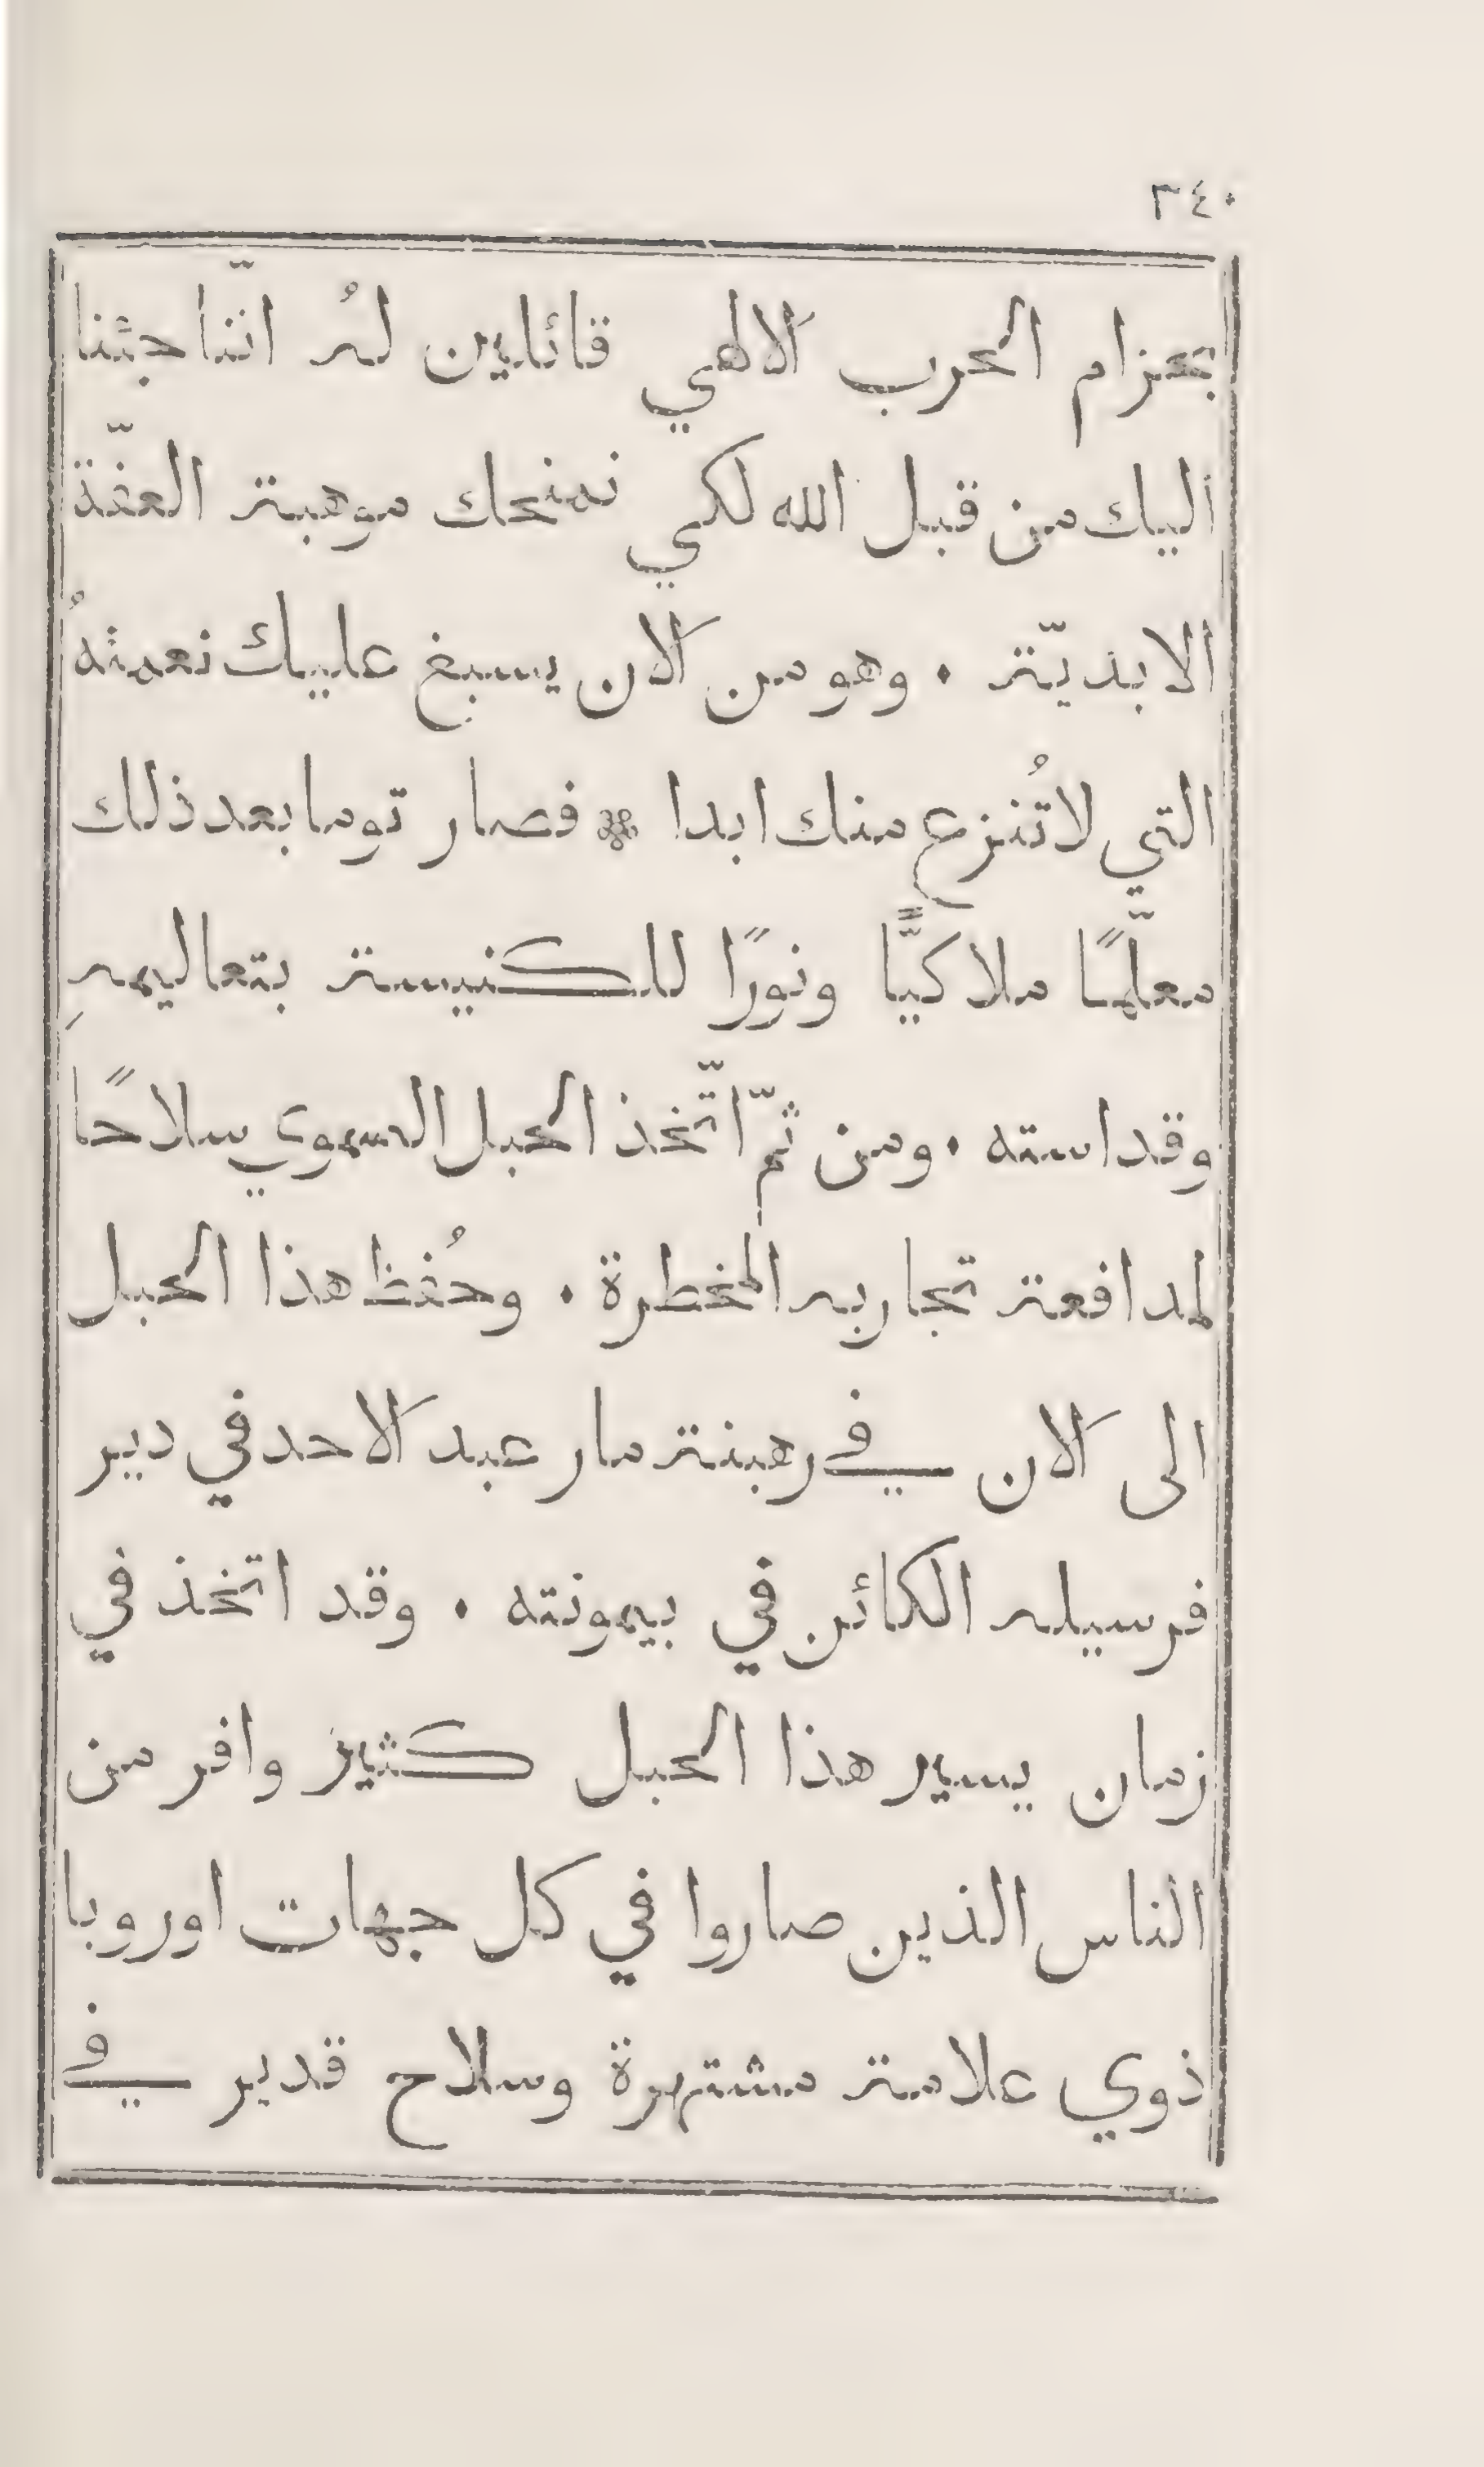 ٣٤٠
بحزام الحرب الالهي قائلين لهُ انّنا جئنا
اليك من قبل الله لكي نمنحك موهبة العفّة
الابديّة . وهو من الان يسبغ عليك نعمتهُ
التي لا تُنزع منك ابدا ❊ فصار توما بعد ذلك
معلّمًا ملاكيًّا ونورًا للكنيسة بتعاليمهِ
وقداسته . ومن ثمّ اتّخذ الحبل السموي سلاحًا
لمدافعة تجاربه المخطرة . وحُفظ هذا الحبل
الى الان في رهبنة مار عبد الاحد في دير
فرسيله الكائن في بيمونته . وقد اتخذ في
زمان يسير هذا الحبل كثير وافر من
الناس الذين صاروا في كل جهات اوروبا
ذوي علامة مشتهرة وسلاح قدير في